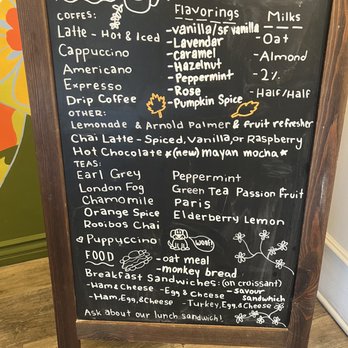 COFFES:
Flavorings
Milks
Latte - Hot & Iced
Cappucino
Americano
Expresso
Drip Coffee
-vanilla/sf vanilla
-Lavendar
-caramel
-Hazelnut
-Peppermint
-Rose
-Pumpkin Spice
-Oat
-Almond
-2%
-Half/Half
OTHER:
Lemonade & Arnold Palmer & fruit refresher
Chai Latte - Spiced, Vanilla, or Raspberry
Hot Chocolate *(new) mayan mocha*
TEAS:
Earl Grey
London Fog
Chamomile
Orange Spice
Rooibos Chai
Peppermint
Green Tea Passion Fruit
Paris
Elderberry Lemon
Puppuccino
woof!
FOOD
-oat meal
-monkey bread
Breakfast Sandwiches: (on croissant)
-Ham & Cheese
-Egg & Cheese
-savour sandwhich
-Ham, Egg, & Cheese
-Turkey, Egg, & Cheese
Ask about our lunch sandwich!